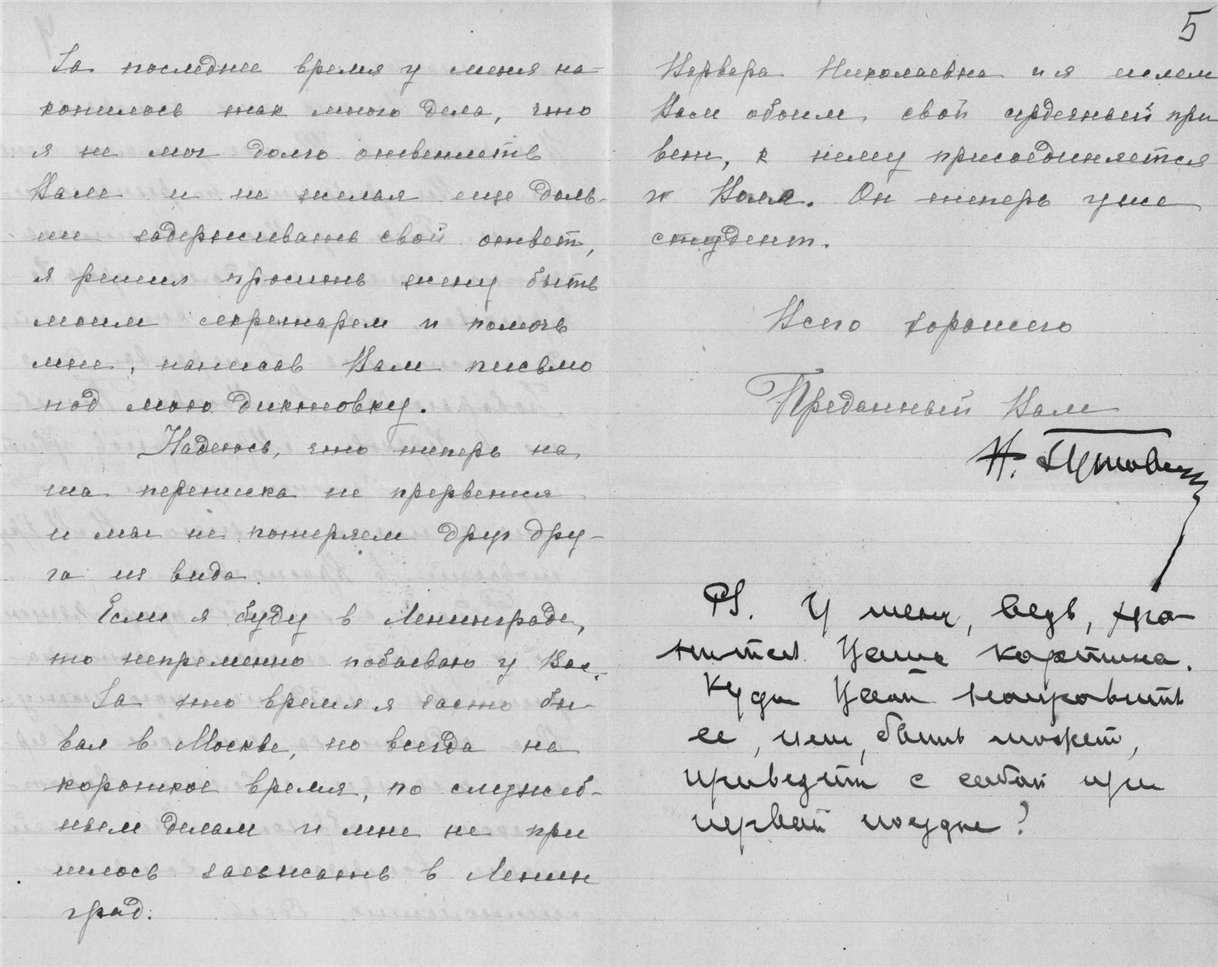 За последнее время у меня на-
копилось так много дела, что
я не мог долго ответить
Вам и не желая еще доль-
ше задерживать свой ответ,
я решил просить жену быть
моим секретарем и помочь
мне, написав Вам письмо
под мою диктовку.
Надеюсь, что теперь на
ша переписка не прервется
и мы не потеряем друг дру-
га из вида
Если я буду в Ленинграде,
то непременно побываю у Вас.
За это время я часто бы-
вал в Москве, но всегда на
короткое время, по служеб-
ным делам и мне не при
шлось заезжать в Ленин
град.
5
Варвара Николаевна и я шлем
Вам обоим свой сердечный при
вет, к нему присоединяется
и Воля. Он теперь уже
студент.
Всего хорошего
Преданный Вам
PS. У меня, ведь, хра-
нится Ваша картина.
Куда Вам направить
ее, или, быть может,
приведут с собой при
первой поездке?